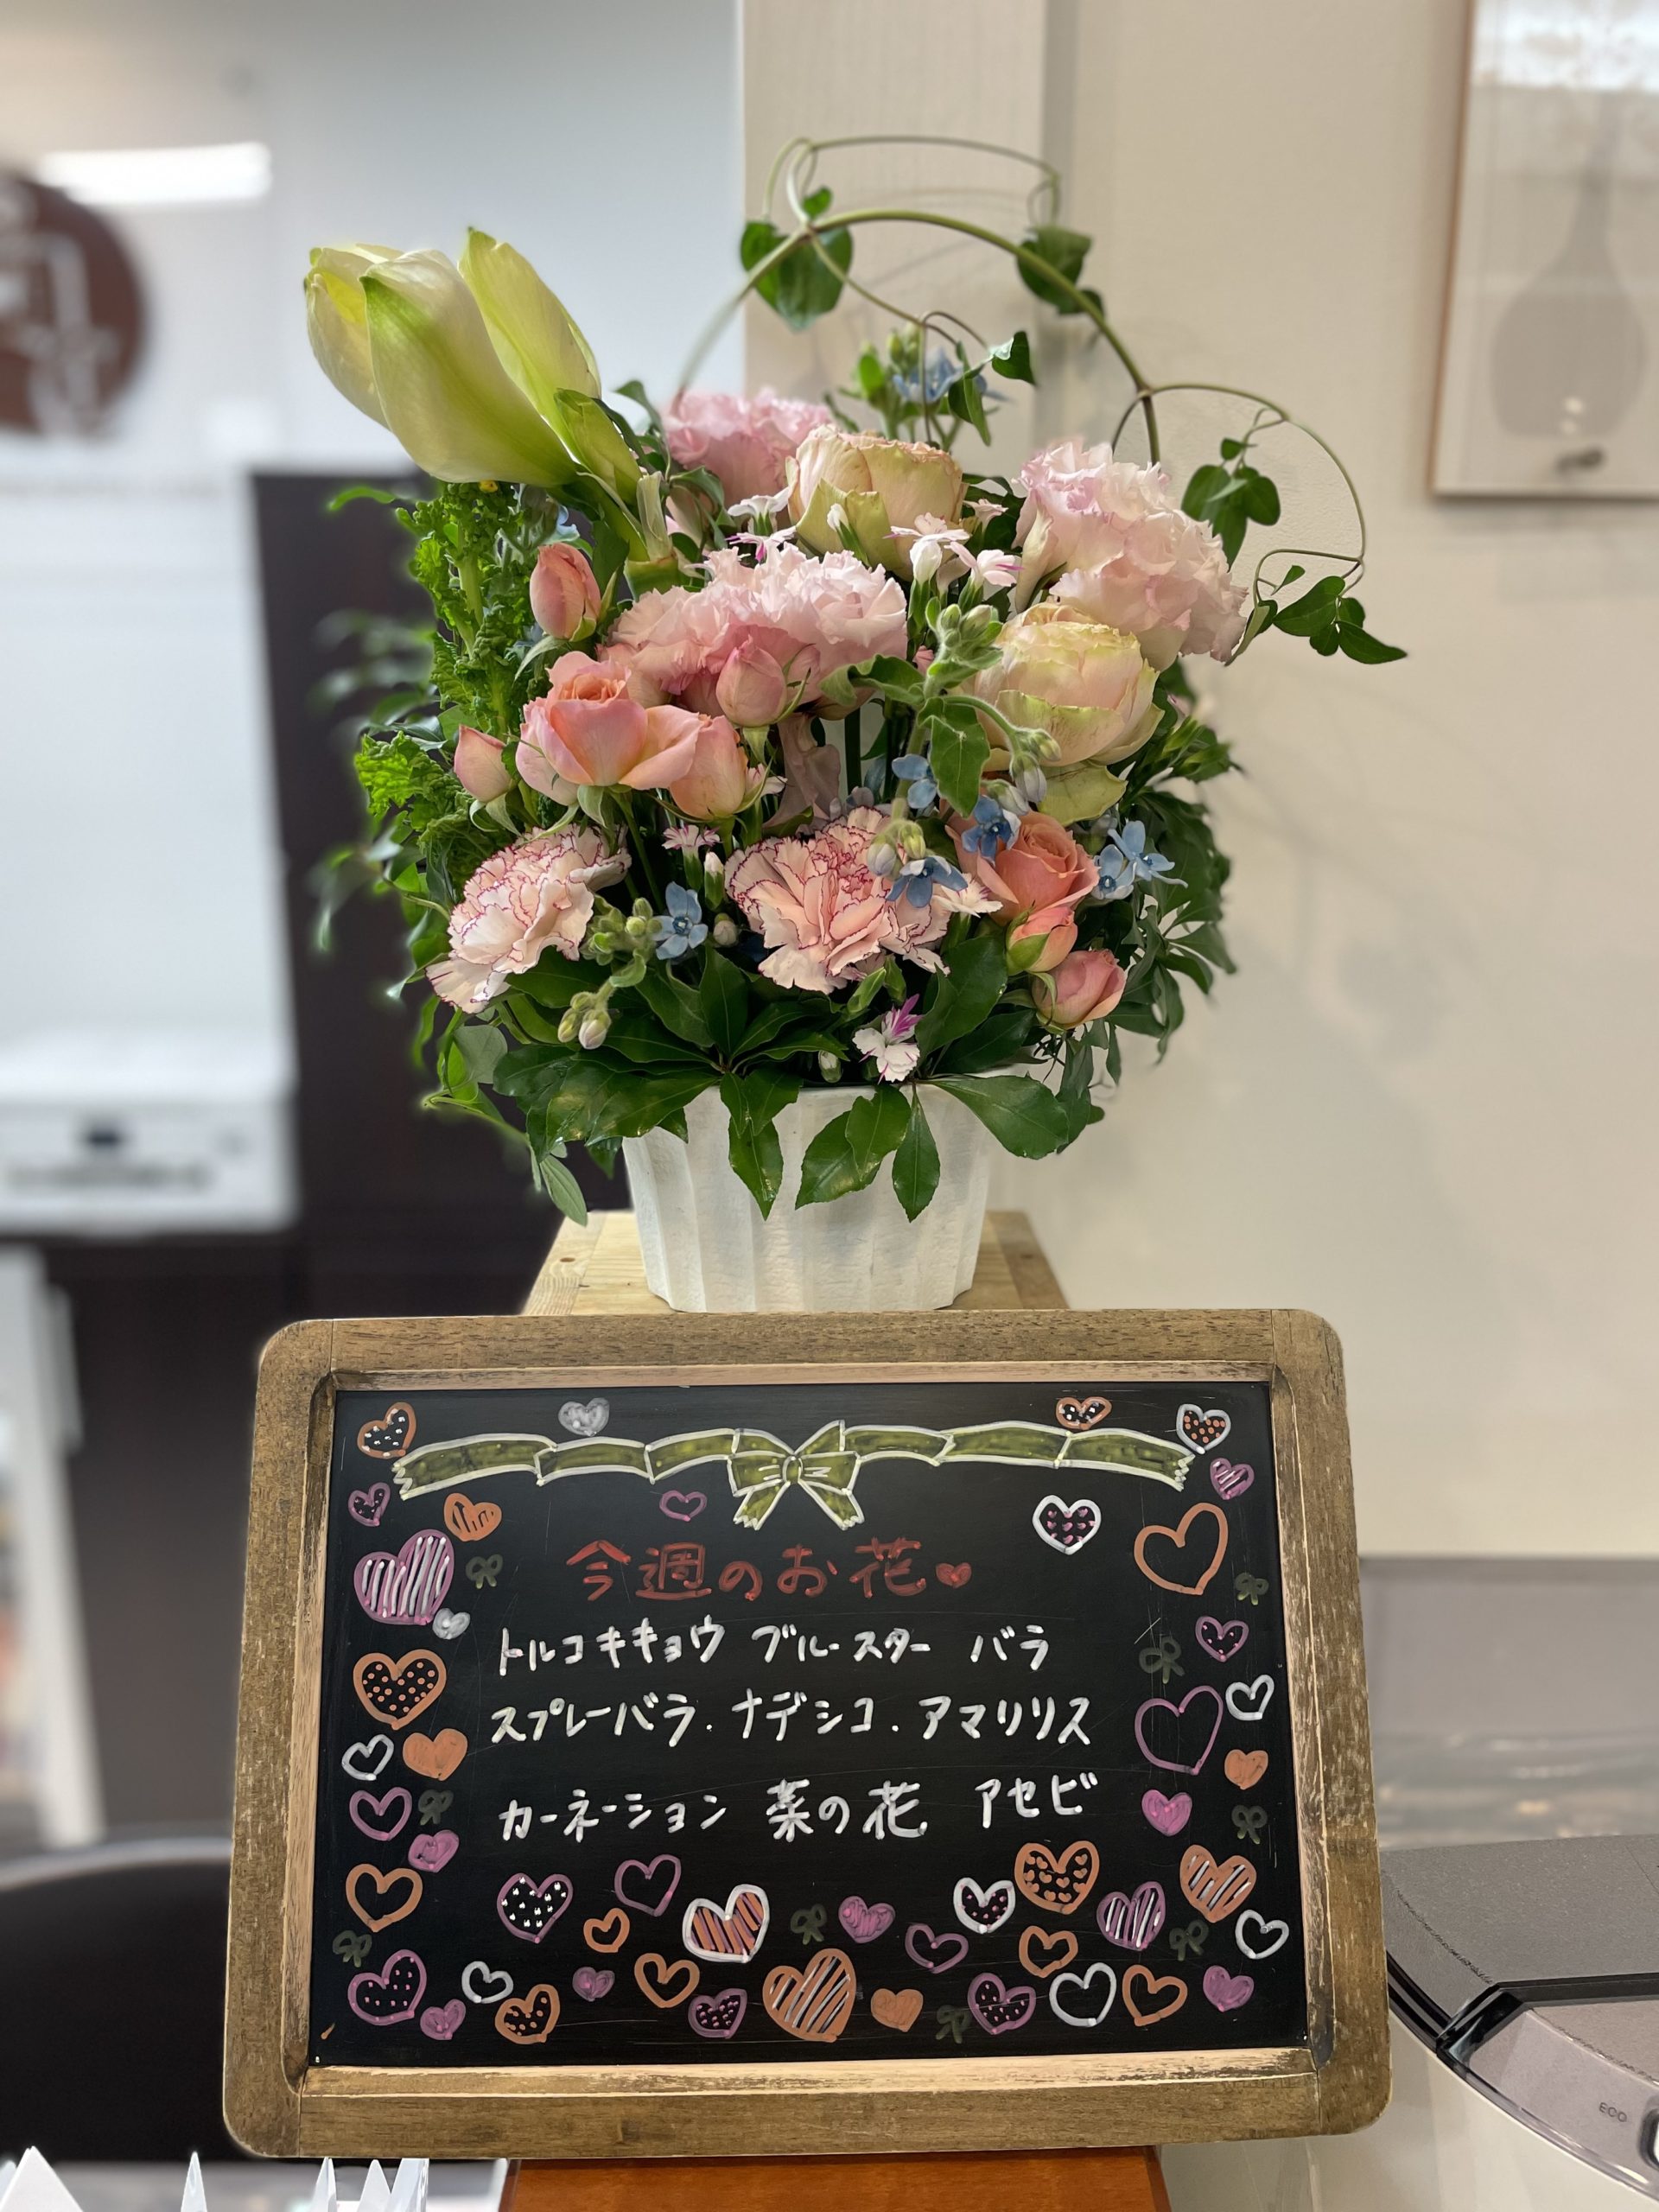 今週のお花♥
トルコキキョウ ブルースター バラ
スプレーバラ．ナデシコ．アマリリス
カーネーション 菜の花 アセビ
ECO